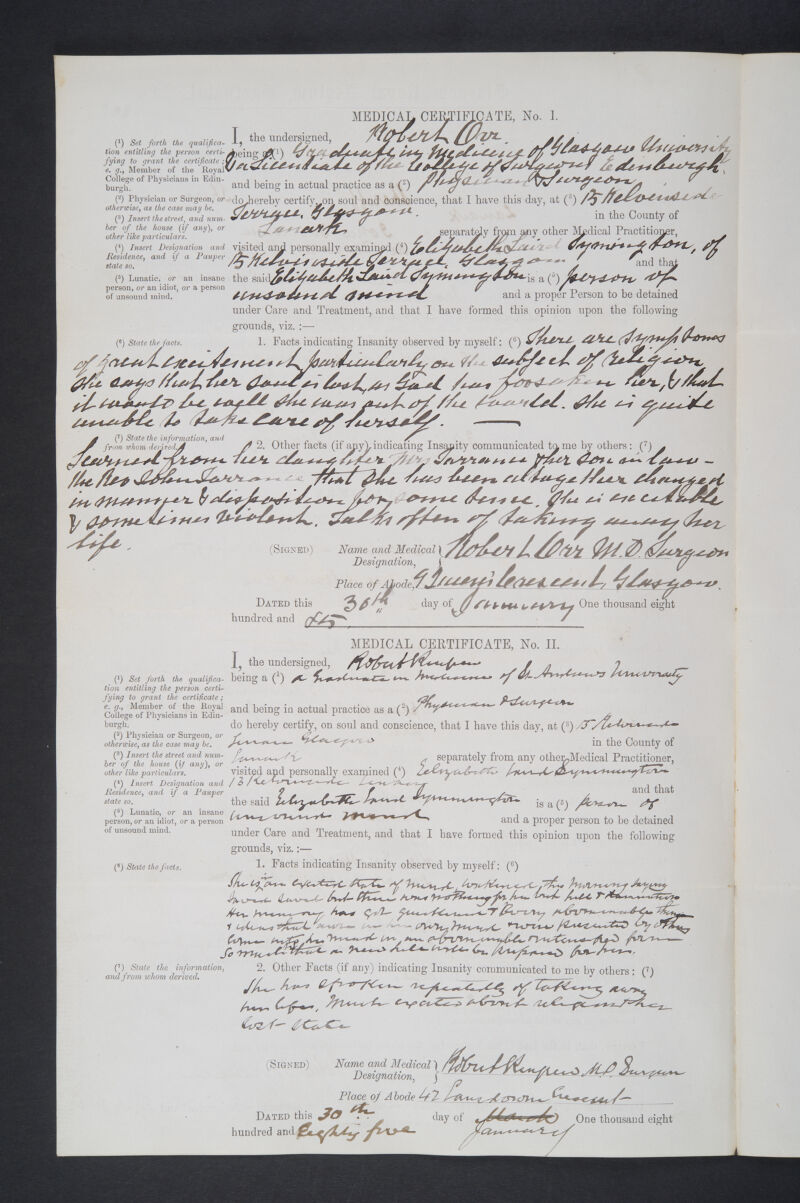 MEDICAL CERTIFICATE, No. I.
(1) Set forth the qualifica-
tion entitling the person certi-
fying to grant the certificate;
e. g., Member of the Royal
College of Physicians in Edin-
burgh.
(2) Physician or Surgeon, or
otherwise, as the case may be.
(3) Insert the street, and num-
ber of the house (if any), or
other like particulars.
(4) Insert Designation and
Residence, and if a Pauper
state so.
(5) Lunatic, or an insane
person, or an idiot, or a person
of unsound mind.
I, the undersigned, Robert Orr
being a (1) Graduate in Medicine of Glasgow University
& a Licentiate of the College of Surgeons Edenburgh.
and being in actual practice as a (2) Physician & Surgeon
do hereby certify, on soul and conscience, that I have this day, at (3) 15 Kelvinside
Terrace, Glasgow in the County of
Lanark separately from any other Medical Practitioner,
visited and personally examined (4) Elizabeth Laird Symington, of
15 Kelvinside Terrace Glasgow and that
the said Elizabeth Laird Symington is a (5) person of
unsound mind and a proper Person to be detained
under Care and Treatment, and that I have formed this opinion upon the following
grounds, viz. :—
(6) State the facts.
1. Facts indicating Insanity observed by myself: (6) There are symptoms
of great excitement particularly on the subject of religion
She says that her soul is lost, as God has forsaken her, & that
it would be well she was out of the world. She is quite
unable to take care of herself. —
(7) State the information, and
from whom derived.
2. Other facts (if any) indicating Insanity communicated to me by others: (7)
Learned from her daughter Mrs Torrance & her son in law –
the Rev John Torrance that she has been altogether changed
in manner & disposition for some time. She is excitable
& sometimes violent. Talks often of taking away her
life.
(SIGNED) Name and Medical Designation, } Robert Orr M.D. Surgeon
Place of Abode, 9 Crescent, Glasgow.
DATED this 30th day of January One thousand eight
hundred and 85.
MEDICAL CERTIFICATE, No. II.
(1) Set forth the qualifica-
tion entitling the person certi-
fying to grant the certificate;
e. g., Member of the Royal
College of Physicians in Edin-
burgh.
(2) Physician or Surgeon, or
otherwise, as the case may be.
(3) Insert the street and num-
ber of the house (if any), or
other like particulars.
(4) Insert Designation and
Residence, and if a Pauper
state so.
(5) Lunatic, or an insane
person, or an idiot, or a person
of unsound mind.
I, the undersigned, Robert
being a (1) a Graduate in Medicine of St. Andrews University
and being in actual practice as a (2) Physician & Surgeon
do hereby certify, on soul and conscience, that I have this day, at (3) 15 Kelvinside
Terrace Glasgow in the County of
Lanark separately from any other Medical Practitioner,
visited and personally examined (4) Eelizabeth Laird Symmington
15 Kelvinside Terrace and that
the said Elizabeth Laird Symmington is a (5) person of
unsound mind and a proper person to be detained
under Care and Treatment, and that I have formed this opinion upon the following
grounds, viz. :—
(6) State the facts.
1. Facts indicating Insanity observed by myself: (6)
She is an excited state of mind, this morning saying
saved but there was nothing for her but hell &
Her memory has got & Every abominable thing
& ideas that in own mind & were presented by others
come into her mind in an abominable & form
So much that a new hell will be prepared for her.
(7) State the information,
and from whom derived.
2. Other Facts (if any) indicating Insanity communicated to me by others: (7)
She has spoken repeatedly of taking away
her life. Much excited about religion & her
lost state
(SIGNED) Name and Medical Designation, } Robert M.D. Surgeon
Place of Abode 42 Lansdowne Crescent
DATED this 30th day of March One thousand eight
hundred and Eighty five January